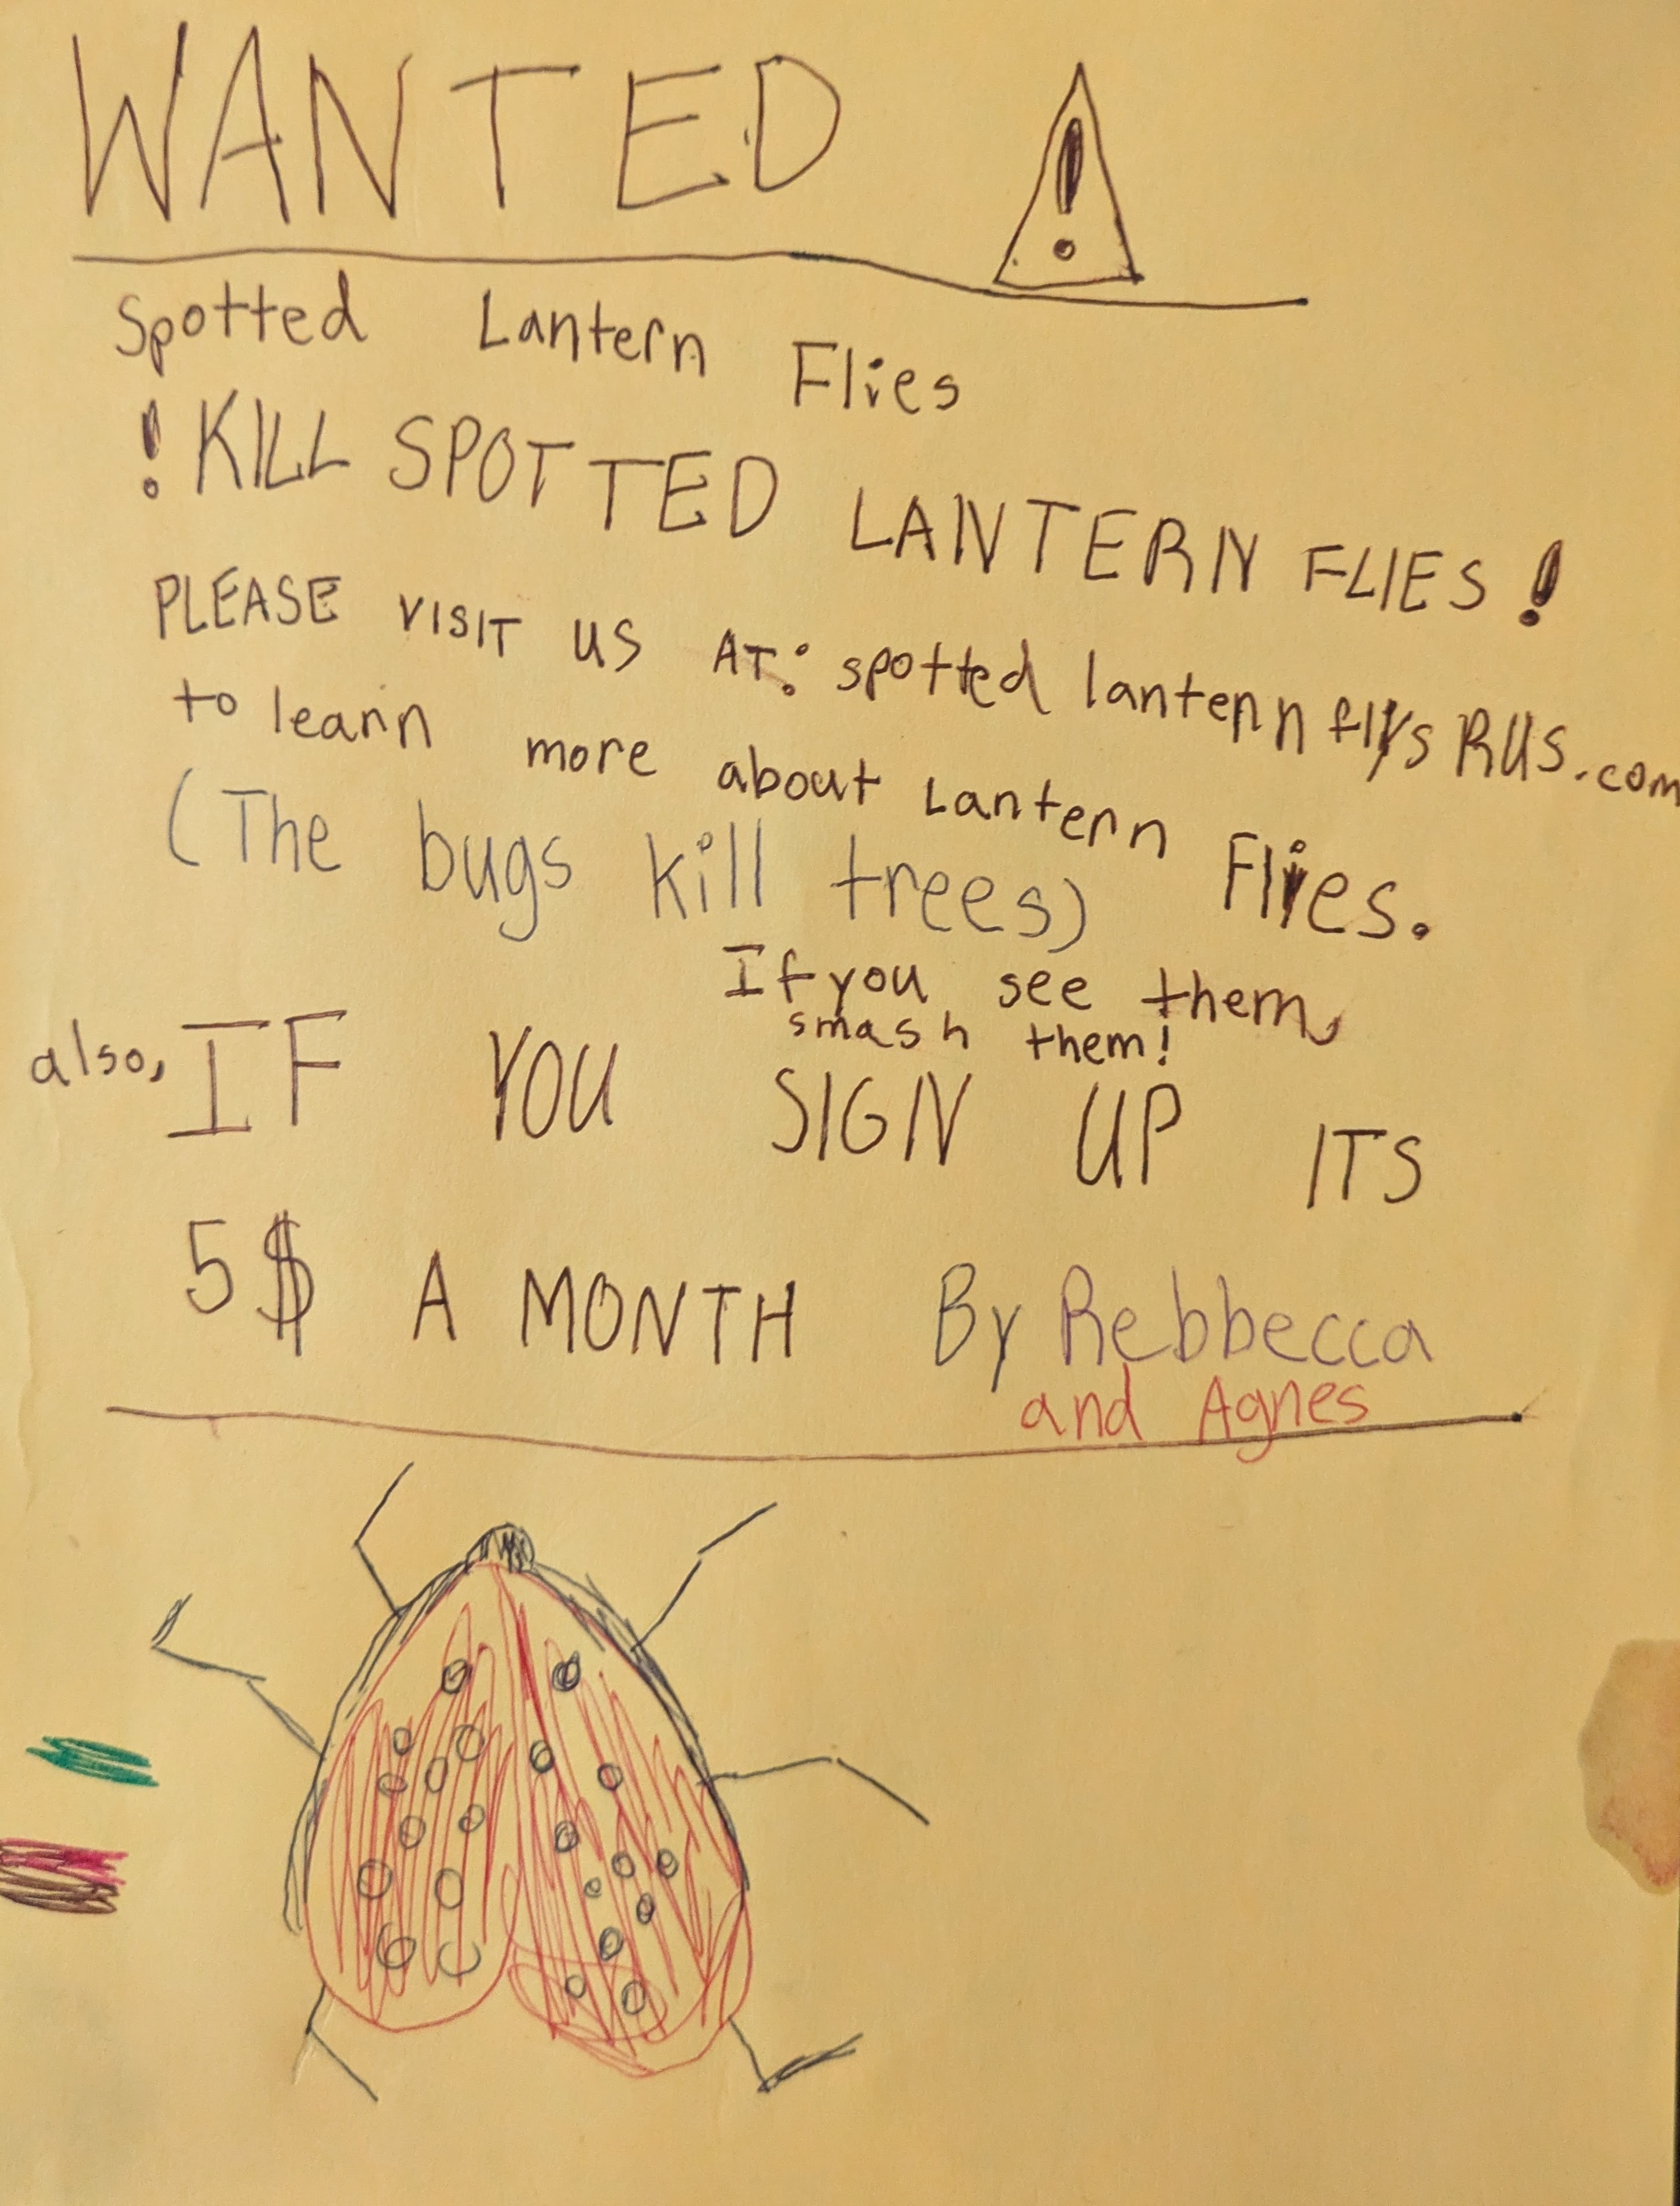 WANTED !
Spotted Lantern Flies
! KILL SPOTTED LANTERN FLIES !
PLEASE VISIT US AT: spotted lantern flys RUS.com
to learn more about Lantern Flies.
(The bugs kill trees)
If you see them,
smash them!
also, IF YOU SIGN UP ITS
5$ A MONTH By Rebbecca
and Agnes